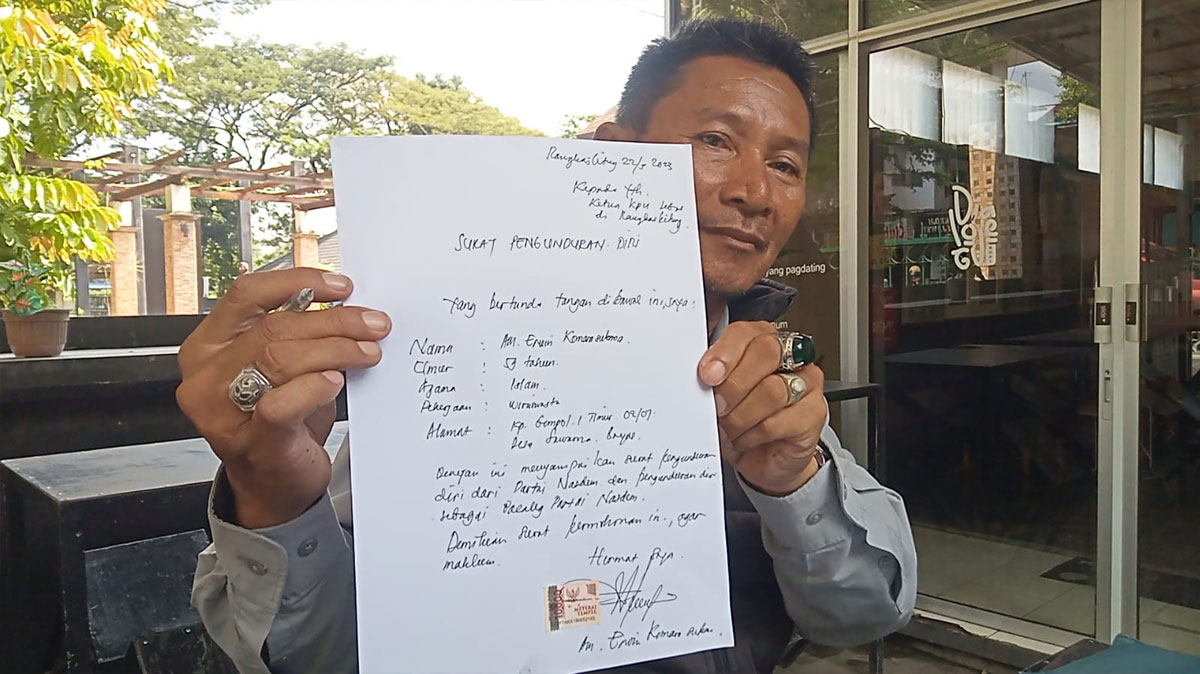 Rangkasbitung 22/5 2023
Kepada Yth.
Ketua KPU Lebak
di Rangkasbitung.
SURAT PENGUNDURAN DIRI
Yang bertanda tangan di bawah ini, saya:
Nama : AM. Erwin Komarasukma
Umur : 53 tahun.
Agama : Islam.
Pekerjaan : Wiraswasta
Alamat : Kp. Gempol. 1 Timur 02/01
Desa Sawarna. Bayah.
Dengan ini menyampaikan surat pengunduran
diri dari Partai Nasdem dan pengunduran diri
sebagai Bacaleg Partai Nasdem.
Demikian surat permohonan ini, agar
maklum.
Hormat saya.
METERAI
TEMPEL
AM. Erwin Komara Sukma.
yang pagdating